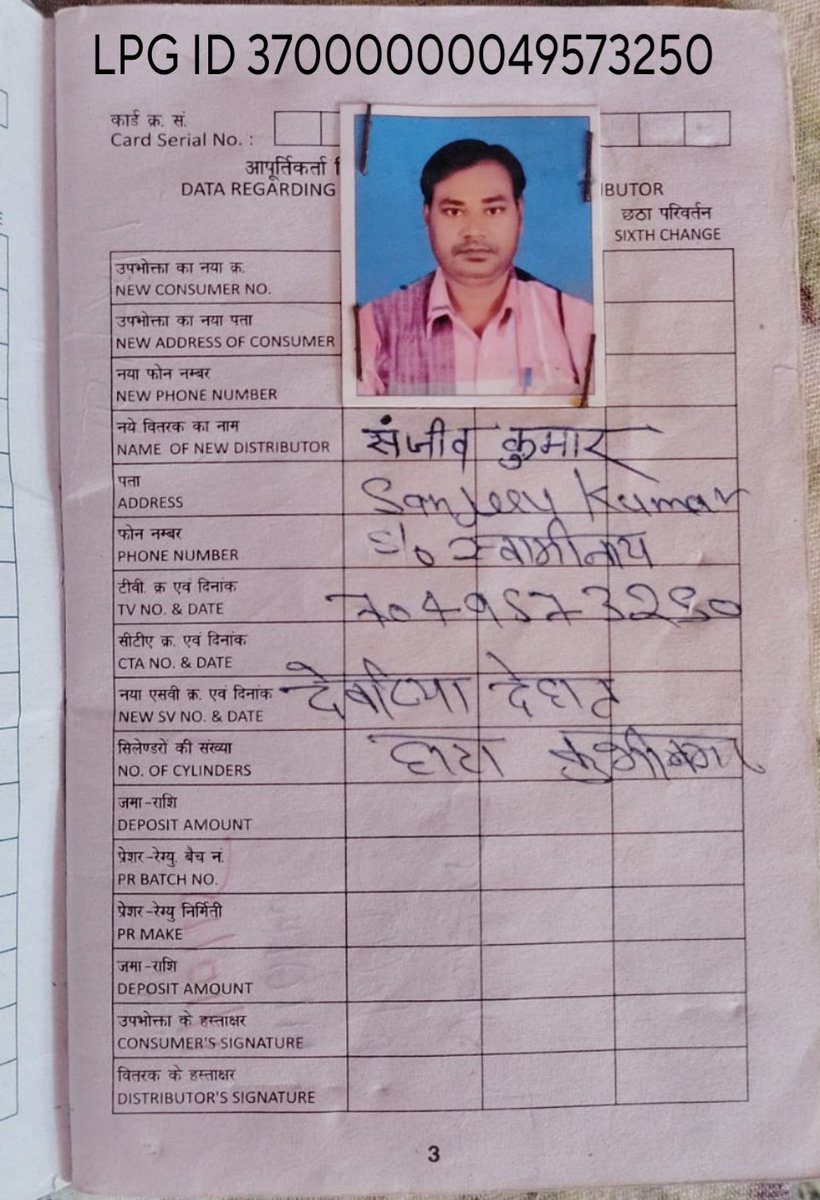 LPG ID 3700000000049573250
कार्ड क्र. सं.
Card Serial No. :
आपूर्तिकर्ता
DATA REGARDING
IBUTOR
छठा परिवर्तन
SIXTH CHANGE
उपभोक्ता का नया क्र.
NEW CONSUMER NO.
उपभोक्ता का नया पता
NEW ADDRESS OF CONSUMER
नया फोन नम्बर
NEW PHONE NUMBER
नये वितरक का नाम
NAME OF NEW DISTRIBUTOR
संजीव कुमार
पता
ADDRESS
Sanjeev Kumar
फोन नम्बर
PHONE NUMBER
S/o स्वामीनाथ
टीवी. क्र एवं दिनांक
TV NO. & DATE
7049573250
सीटीए क्र. एवं दिनांक
CTA NO. & DATE
नया एसवी क्र. एवं दिनांक
NEW SV NO. & DATE
देहात
सिलेण्डरों की संख्या
NO. OF CYLINDERS
जमा -राशि
DEPOSIT AMOUNT
प्रेशर -रेग्यु. बैच नं.
PR BATCH NO.
प्रेशर -रेग्यु निर्मिती
PR MAKE
जमा -राशि
DEPOSIT AMOUNT
उपभोक्ता के हस्ताक्षर
CONSUMER'S SIGNATURE
वितरक के हस्ताक्षर
DISTRIBUTOR'S SIGNATURE
3